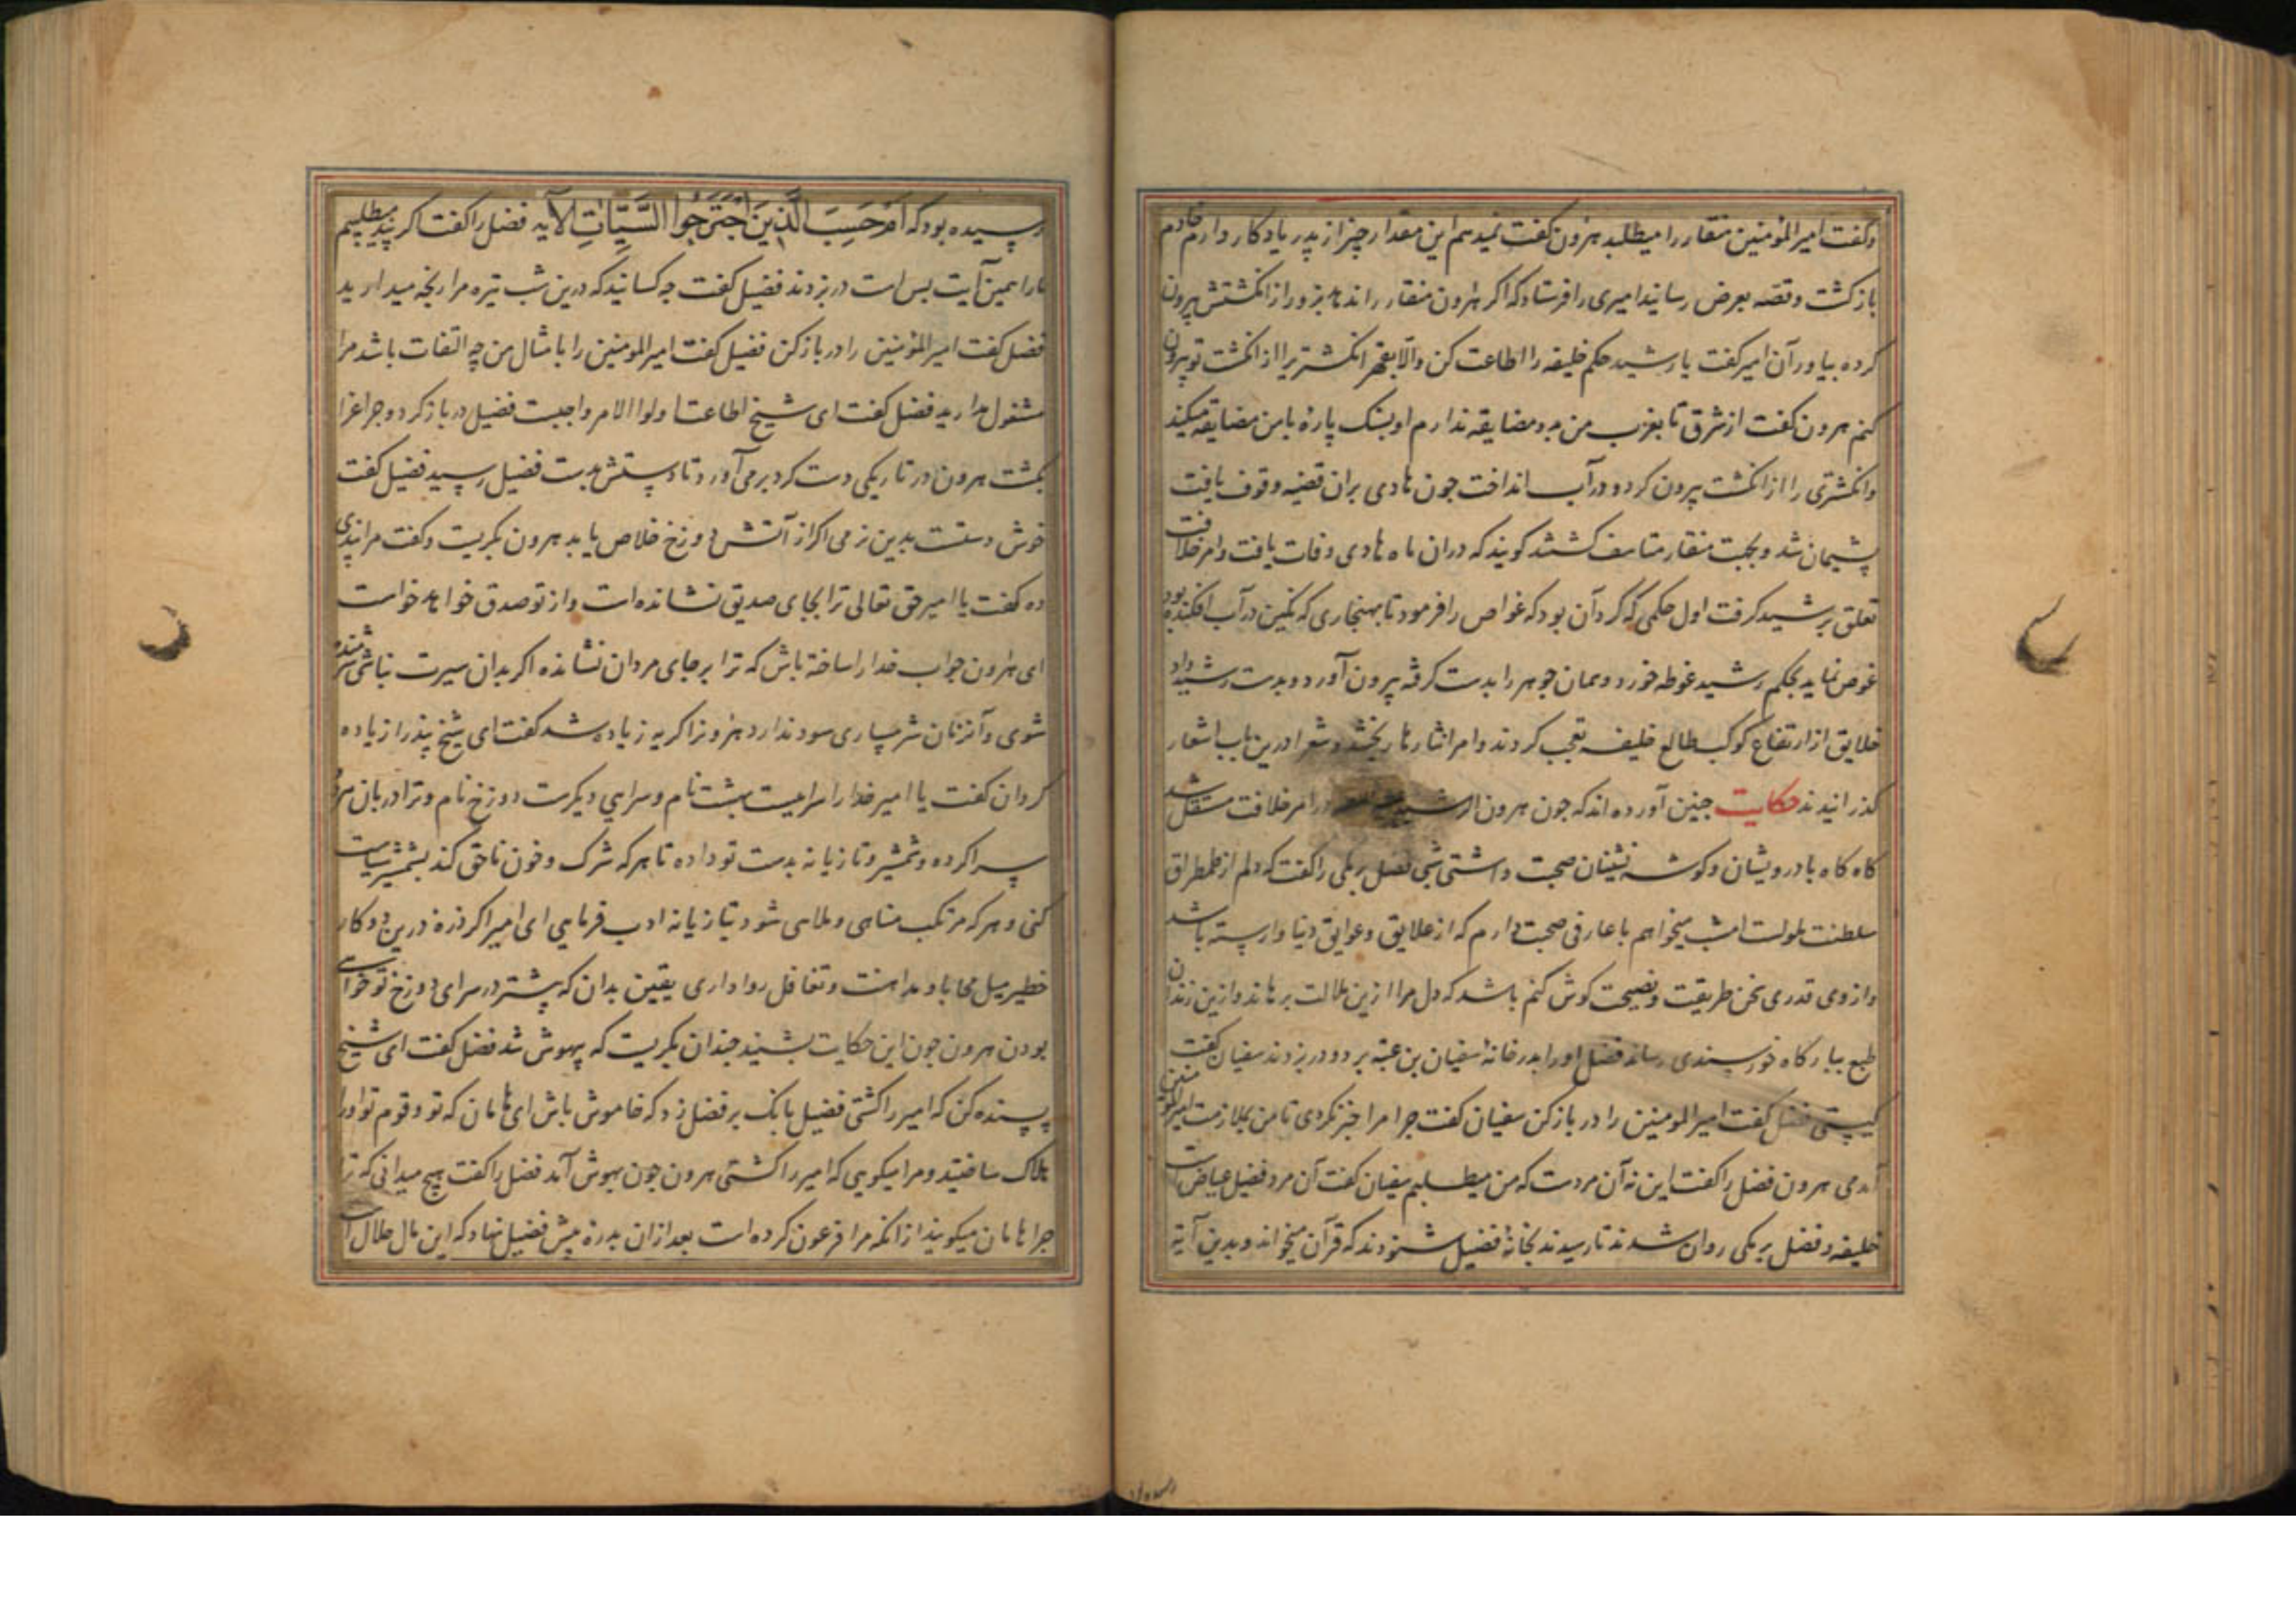 و گفت امیر المؤمنین منقار را میطلبد هرون گفت نمیدهم این مقدار چیز از پدر یادکار دارم خادم
بازکشت و قصه بعرض رسانید امیری را فرستاد که اکر هرون منقار را ندهد بزور از انکشتش بیرون
کرده بیاور آن امیر گفت یا رشید حکم خلیفه را اطاعت کن والا بقهر انکشتری را از انکشت تو بیرون
کنم هرون گفت از شرق تا بغرب من بدو مضایقه ندارم او بسنک پارهٔ با من مضایقه میکند
و انکشتری را از انکشت بیرون کرد و در آب انداخت جون هادی بران قضیه وقوف یافت
پشیمان شد و بجهت منقار متاسف کشتند کویند که دران ماه هادی وفات یافت و امر خلافت
تعلق برشید کرفت اول حکمی که کرد آن بود که غواص را فرمود تا بهنجاری که نکین در آب افکنده بود
غوص نماید بحکم رشید غوطه خورد و همان جوهر را بدست کرفته بیرون آورد و بدست رشید داد
خلایق از ارتفاع کوکب طالع خلیفه تعجب کردند و امرا نثارها بخشید و شعرا درین باب اشعار
کذرانیدند حکایت جنین آورده اند که جون هرون الرشید در امر خلافت مستقل شد
کاه کاه با درویشان و کوشه نشینان صحبت داشتی شبی فضل برمکی را گفت که دلم از طمطراق
سلطنت ملولست امشب میخواهم با عارفی صحبت دارم که از علایق و عوایق دنیا وارسته باشد
و از وی قدری سخن طریقت و نصیحت کوش کنم باشد که دل مرا ازین ملالت برهاند و ازین زندان
طبع ببارکاه خورسندی رساند فضل او را بدر خانهٔ سفیان بن عیینه برد و در بزدند سفیان گفت
کیستی فضل گفت امیر المومنین را در باز کن سفیان گفت جرا مرا خبر نکردی تا من بملازمت امیر المؤمنین
آمدمی هرون فضل را گفت این نه آن مردست که من میطلبم سفیان گفت آن مرد فضیل عیاض است
خلیفه و فضل برمکی روان شدند تا رسیدند بخانهٔ فضیل شنودند که قرآن میخواند و بدین آیة
رسیده بود که اَمْ حَسِبَ الَّذِينَ اجْتَرَحُوا السَّيِّئَاتِ الآیه فضل را گفت اکر پند میطلبیم
ما را همین آیت بس است در بزدند فضیل گفت جه کسانید که درین شب تیره مرا رنجه میدارید
فضل گفت امیر المؤمنین را در باز کن فضیل گفت امیر المومنین را با مثال من چه التفات باشد مرا
مشغول مدارید فضل گفت ای شیخ اطاعت اولوا الامر واجبست فضیل در باز کرد و جراغ را
بکشت هرون در تاریکی دست کرد برمی آورد تا دستش بدست فضیل رسید فضیل گفت
خوش دستست بدین نرمی اکر از آتش دوزخ خلاص یابد هرون بکریست و گفت مرا پندی
ده گفت یا امیر حق تعالی ترا بجای صدیق نشانده است و از تو صدق خواهد خواست
ای هرون جواب خدا را ساخته باش که ترا بر جای مردان نشانده اکر بدان سیرت نباشی شرمنده
شوی و آنزمان شرمساری سود ندارد هرون را کریه زیاده شد گفت ای شیخ پند را زیاده
کردان گفت یا امیر خدا را سراییست بهشت نام و سرایی دیکرست دوزخ نام و ترا دربان هر دو
سرا کرده و شمشیر و تازیانه بدست تو داده تا هر که شرک و خون ناحق کند بشمشیر سیاست
کنی و هر که مرتکب مناهی و ملاهی شود بتازیانه ادب فرمایی ای امیر اکر ذرهٔ درین دو کار
خطیر میل محابا و مداهنت و تغافل روا داری یقین بدان که پیشتر در سرای دوزخ تو خواهی
بودن هرون جون این حکایت بشنید جندان بکریست که بیهوش شد فضل گفت ای شیخ
بسنده کن که امیر را کشتی فضیل بانک بر فضل زد که خاموش باش ای هامان که تو و قوم تو او را
هلاک ساختید و مرا میکویی که امیر را کشتی هرون جون بهوش آمد فضل را گفت هیچ میدانی که ترا
جرا هامان میکویند از آنکه مرا فرعون کرده است بعد ازان بدرهٔ پیش فضیل نهاد که این مال حلال است